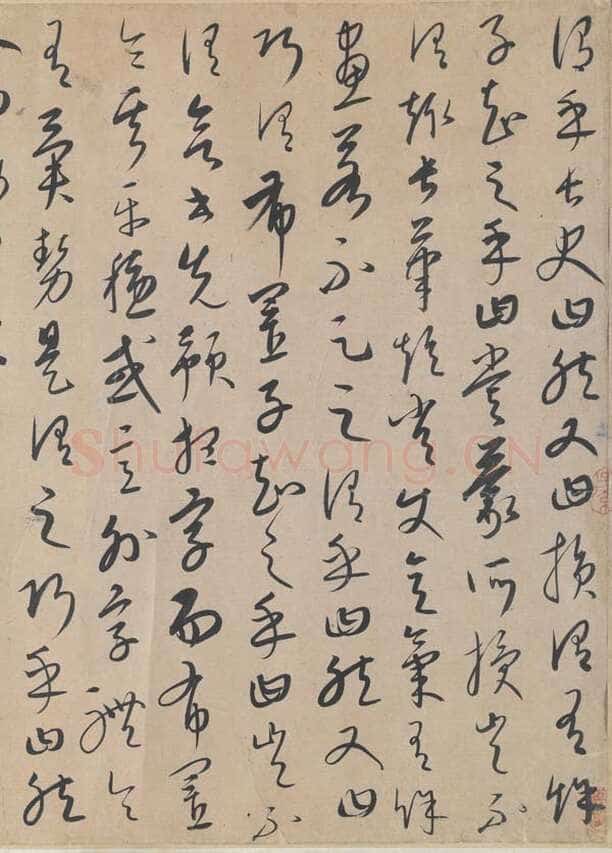 謂乎長史曰然又曰損謂有餘
子知之乎曰嘗蒙所損豈不
謂趣長筆短常使意氣有餘
畫若不足之謂乎曰然又曰
巧謂布置子知之乎曰豈不
謂欲書先預想字而布置
令其平穩或意外字體令
有異勢是謂之巧乎曰然
Shufawang.CN